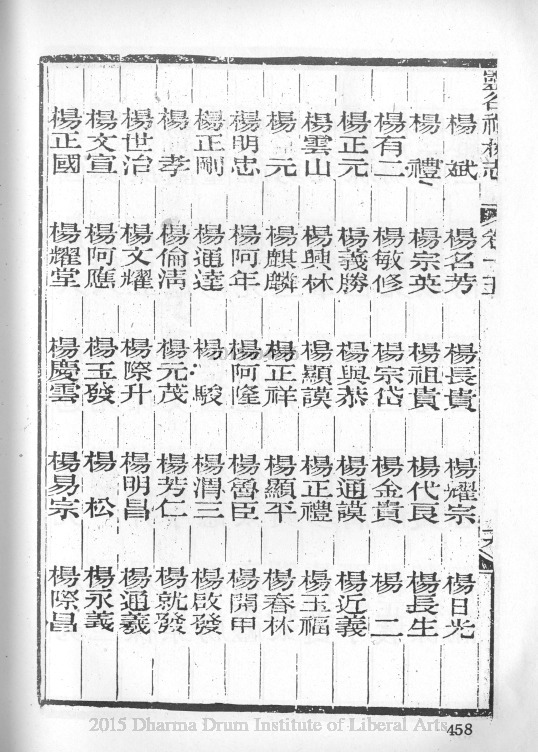 靈谷禪林志 卷十五
楊斌 楊名芳 楊長貴 楊耀宗 楊日光
楊禮 楊宗英 楊祖貴 楊代良 楊長生
楊有二 楊敏修 楊宗岱 楊金貴 楊二
楊正元 楊義勝 楊與恭 楊通謨 楊近義
楊雲山 楊興林 楊顯謨 楊正禮 楊玉福
楊元 楊麒麟 楊正祥 楊顯平 楊春林
楊明忠 楊阿年 楊阿隆 楊魯臣 楊開甲
楊正剛 楊通達 楊駿 楊渭三 楊啟發
楊孝 楊倫清 楊元茂 楊芳仁 楊就發
楊世治 楊文耀 楊際升 楊明昌 楊通義
楊文宣 楊阿應 楊玉發 楊松 楊永義
楊正國 楊耀堂 楊慶雲 楊易宗 楊際昌
2015 Dharma Drum Institute of Liberal Arts
458